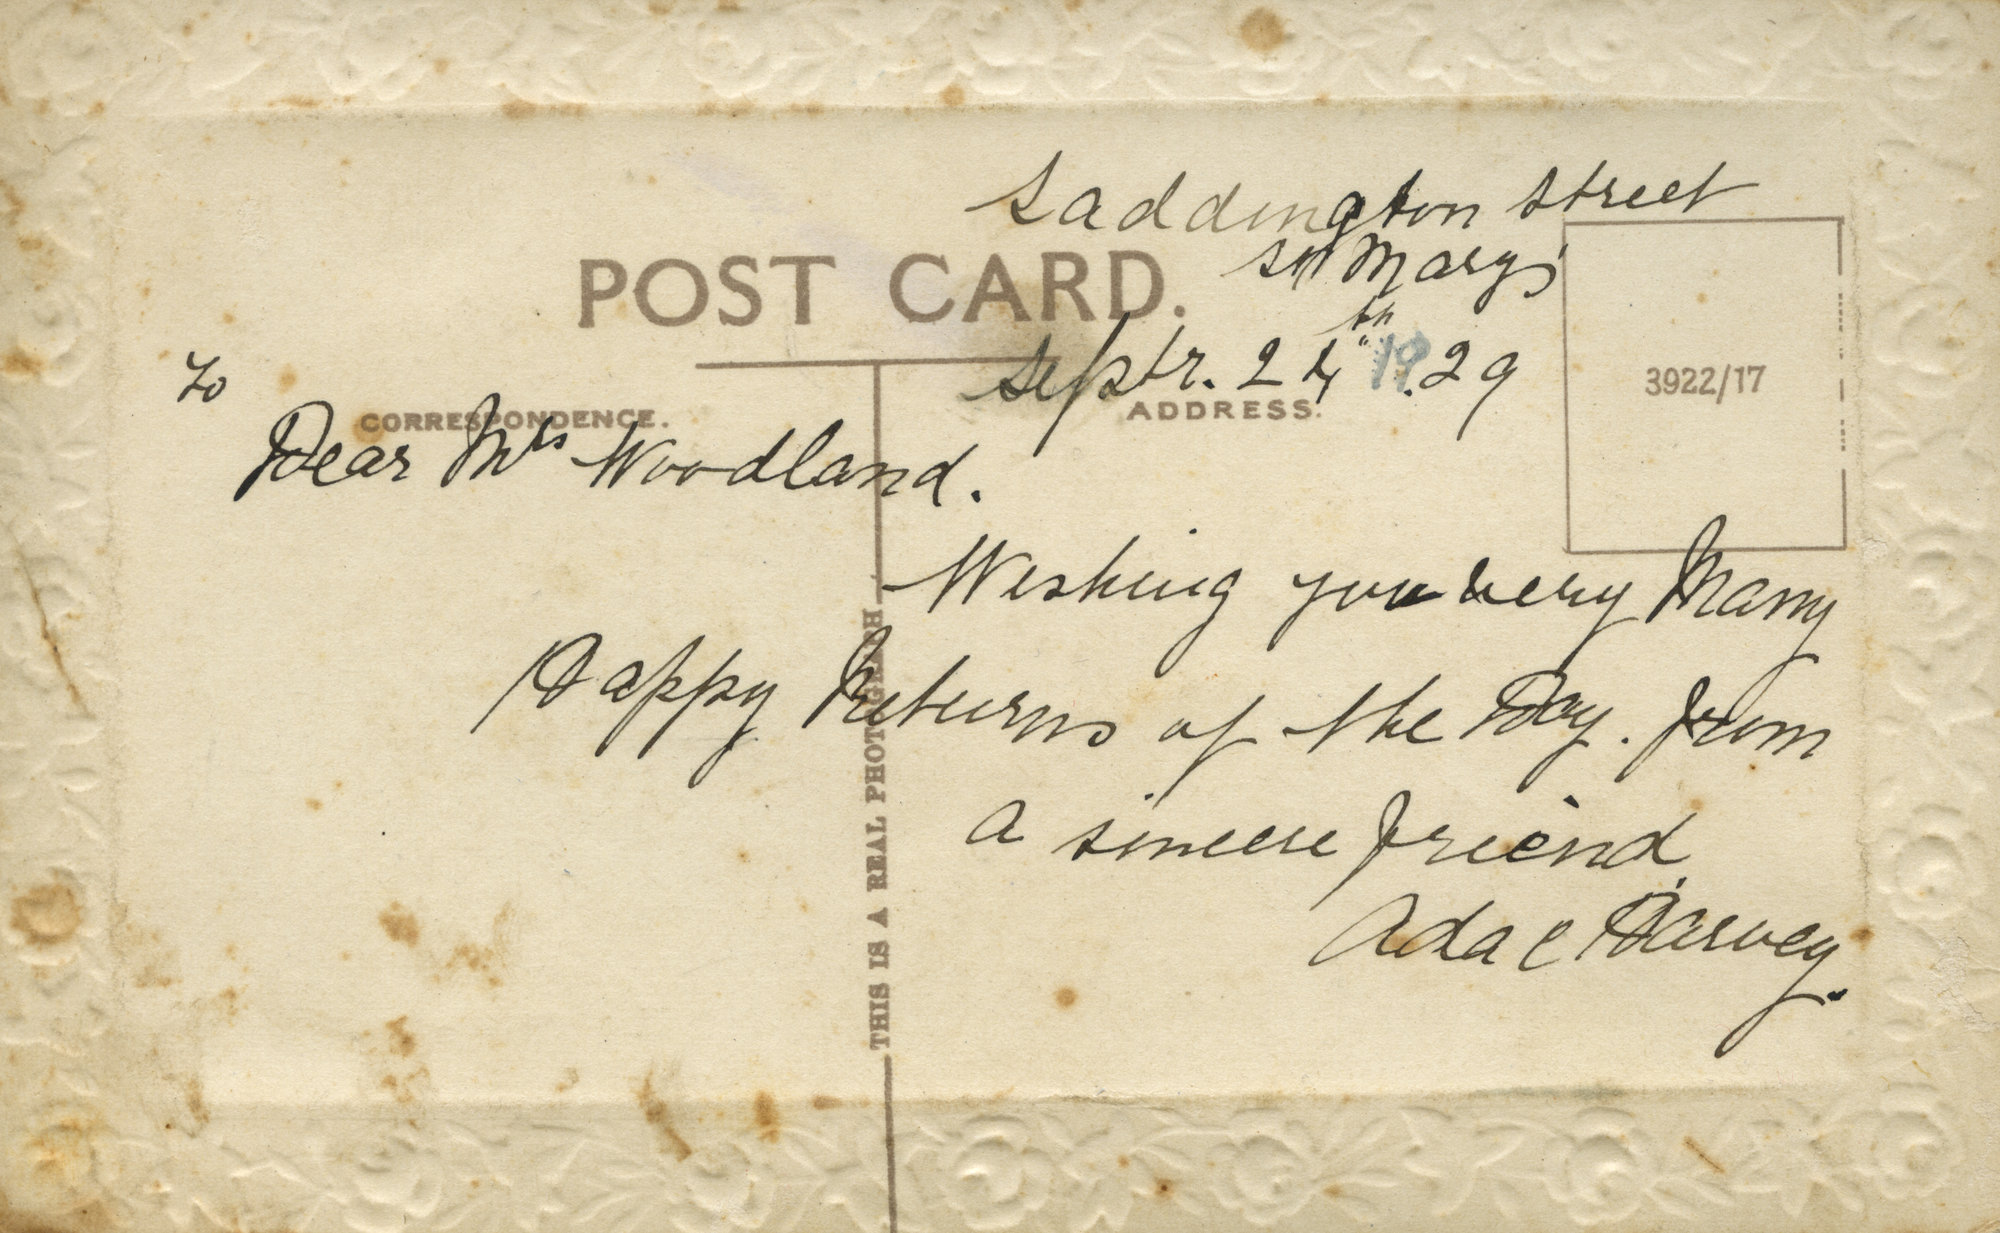 Saddington Street
St Marys
POST CARD.
Septr. 24th 19.29
To
CORRESPONDENCE.
ADDRESS.
3922/17
Dear Mrs Woodland.
Wishing you very Many
Happy Returns of the Day. from
a sincere friend.
Ada E Harvey.
THIS IS A REAL PHOTOGRAPH